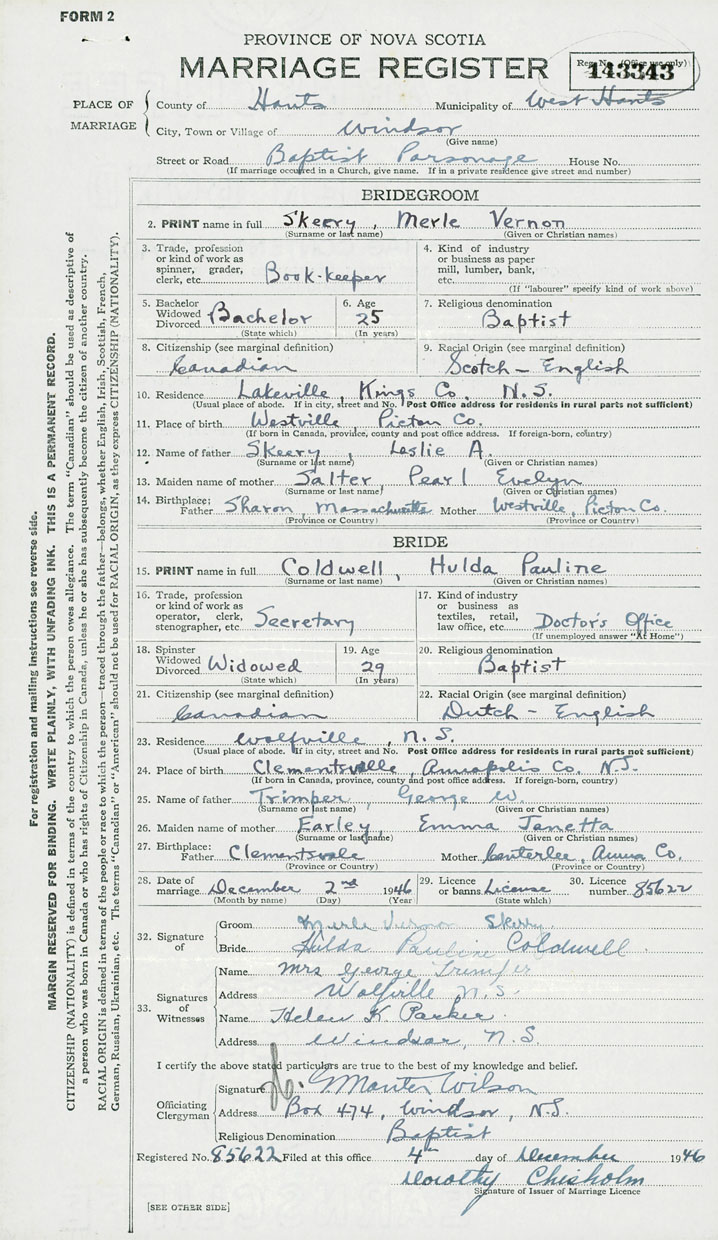 FORM 2
PROVINCE OF NOVA SCOTIA
MARRIAGE REGISTER
Reg. No. (Office use only)
143343
PLACE OF MARRIAGE
County of Hants Municipality of West Hants
City, Town or Village of Windsor
(Give name)
Street or Road Baptist Parsonage House No.
(If marriage occurred in a Church, give name. If in a private residence give street and number)
BRIDEGROOM
2. PRINT name in full Skerry, Merle Vernon
(Surname or last name) (Given or Christian names)
3. Trade, profession or kind of work as spinner, grader, clerk, etc. Book-keeper
4. Kind of industry or business as paper mill, lumber, bank, etc.
(If "labourer" specify kind of work above)
5. Bachelor Widowed Divorced Bachelor
(State which)
6. Age 25
(In years)
7. Religious denomination
Baptist
8. Citizenship (see marginal definition)
Canadian
9. Racial Origin (see marginal definition)
Scotch - English
10. Residence Lakeville, Kings Co. N.S.
(Usual place of abode. If in city, street and No. Post Office address for residents in rural parts not sufficient)
11. Place of birth Westville Pictou Co.
(If born in Canada, province, county and post office address. If foreign-born, country)
12. Name of father Skerry, Leslie A.
(Surname or last name) (Given or Christian names)
13. Maiden name of mother Salter, Pearl Evelyn
(Surname or last name) (Given or Christian names)
14. Birthplace: Father Sharon, Massachusetts Mother Westville, Pictou Co.
(Province or Country) (Province or Country)
BRIDE
15. PRINT name in full Coldwell, Hulda Pauline
(Surname or last name) (Given or Christian names)
16. Trade, profession or kind of work as operator, clerk, stenographer, etc. Secretary
17. Kind of industry or business as textiles, retail, law office, etc. Doctor's Office
(If unemployed answer "At Home")
18. Spinster Widowed Divorced Widowed
(State which)
19. Age 29
(In years)
20. Religious denomination
Baptist
21. Citizenship (see marginal definition)
Canadian
22. Racial Origin (see marginal definition)
Dutch - English
23. Residence Wolfville, N.S.
(Usual place of abode. If in city, street and No. Post Office address for residents in rural parts not sufficient)
24. Place of birth Clementsvale, Annapolis Co. N.S.
(If born in Canada, province, county and post office address. If foreign-born, country)
25. Name of father Trimper, George W.
(Surname or last name) (Given or Christian names)
26. Maiden name of mother Earley, Emma Janetta
(Surname or last name) (Given or Christian names)
27. Birthplace: Father Clementsvale Mother Centerlee, Anna Co.
(Province or Country) (Province or Country)
28. Date of marriage December 2nd 1946
(Month by name) (Day) (Year)
29. Licence or banns License
(State which)
30. Licence number 85622
32. Signature of
Groom Merle Vernon Skerry
Bride Hulda Pauline Coldwell
33. Signatures of Witnesses
Name Mrs George Trimper
Address Wolfville N.S.
Name Helen K Parker
Address Windsor, N.S.
I certify the above stated particulars are true to the best of my knowledge and belief.
Officiating Clergyman
Signature G Manter Wilson
Address Box 474, Windsor, N.S.
Religious Denomination Baptist
Registered No. 85622 Filed at this office 4th day of December 1946
Dorothy Chisholm
Signature of Issuer of Marriage Licence
[SEE OTHER SIDE]
For registration and mailing instructions see reverse side.
MARGIN RESERVED FOR BINDING. WRITE PLAINLY, WITH UNFADING INK. THIS IS A PERMANENT RECORD.
CITIZENSHIP (NATIONALITY) is defined in terms of the country to which the person owes allegiance. The term "Canadian" should be used as descriptive of
a person who was born in Canada or who has rights of Citizenship in Canada, unless he or she has subsequently become the citizen of another country.
RACIAL ORIGIN is defined in terms of the people or race to which the person—traced through the father—belongs, whether English, Irish, Scottish, French,
German, Russian, Ukrainian, etc. The terms "Canadian" or "American" should not be used for RACIAL ORIGIN, as they express CITIZENSHIP (NATIONALITY).